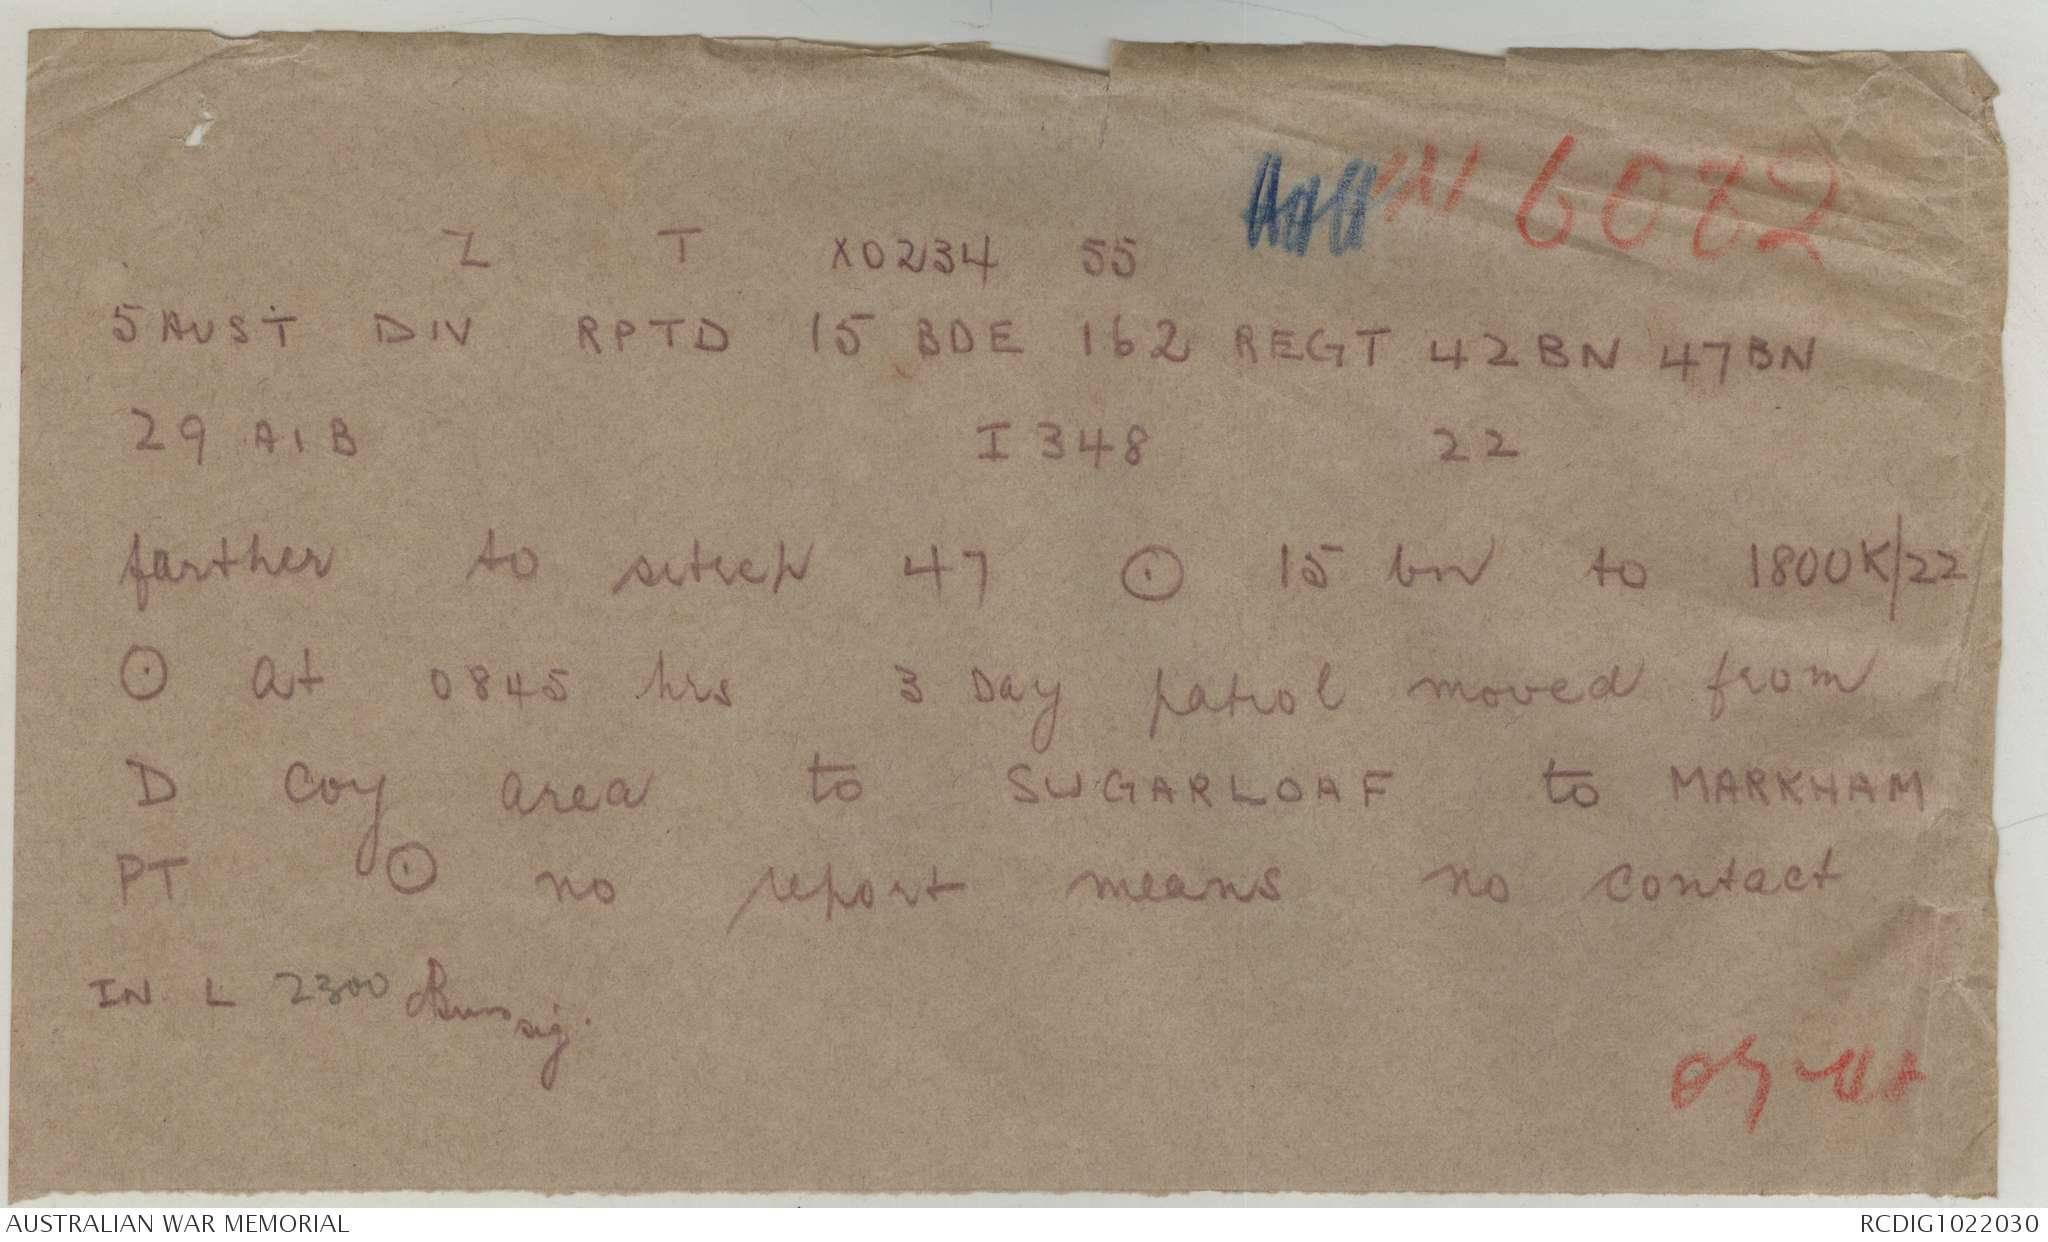 6082
Z T X0234 55
5 AUST DIV RPTD 15 BDE 162 REGT 42 BN 47 BN
29 AIB I 348 22
farther to sitrep 47 ⊙ 15 bn to 1800K/22
⊙ at 0845 hrs 3 Day patrol moved from
D Coy area to SUGARLOAF to MARKHAM
PT ⊙ no report means no contact
IN L 2300 sig.
AUSTRALIAN WAR MEMORIAL RCDIG1022030